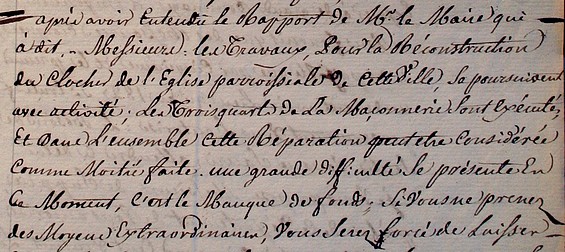 après avoir Entendu le Rapport de Mr. le Maire qui
a dit, - Messieurs : les Travaux, Pour la Réconstruction
du Clocher de l'Eglise parroissiale de Cette Ville, se poursuivent
avec activité ; Les Troisquart de La Maçonnerie sont Exécutés,
Et Dans L'ensemble Cette Réparation peut etre Considérée
Comme Moitié faite. une grande difficulté se présente En
Ce Moment, C'est le Manque de fonds ; Si Vous ne prenez
des Moyens Extraordinaires, Vous Serez forcés de Laisser